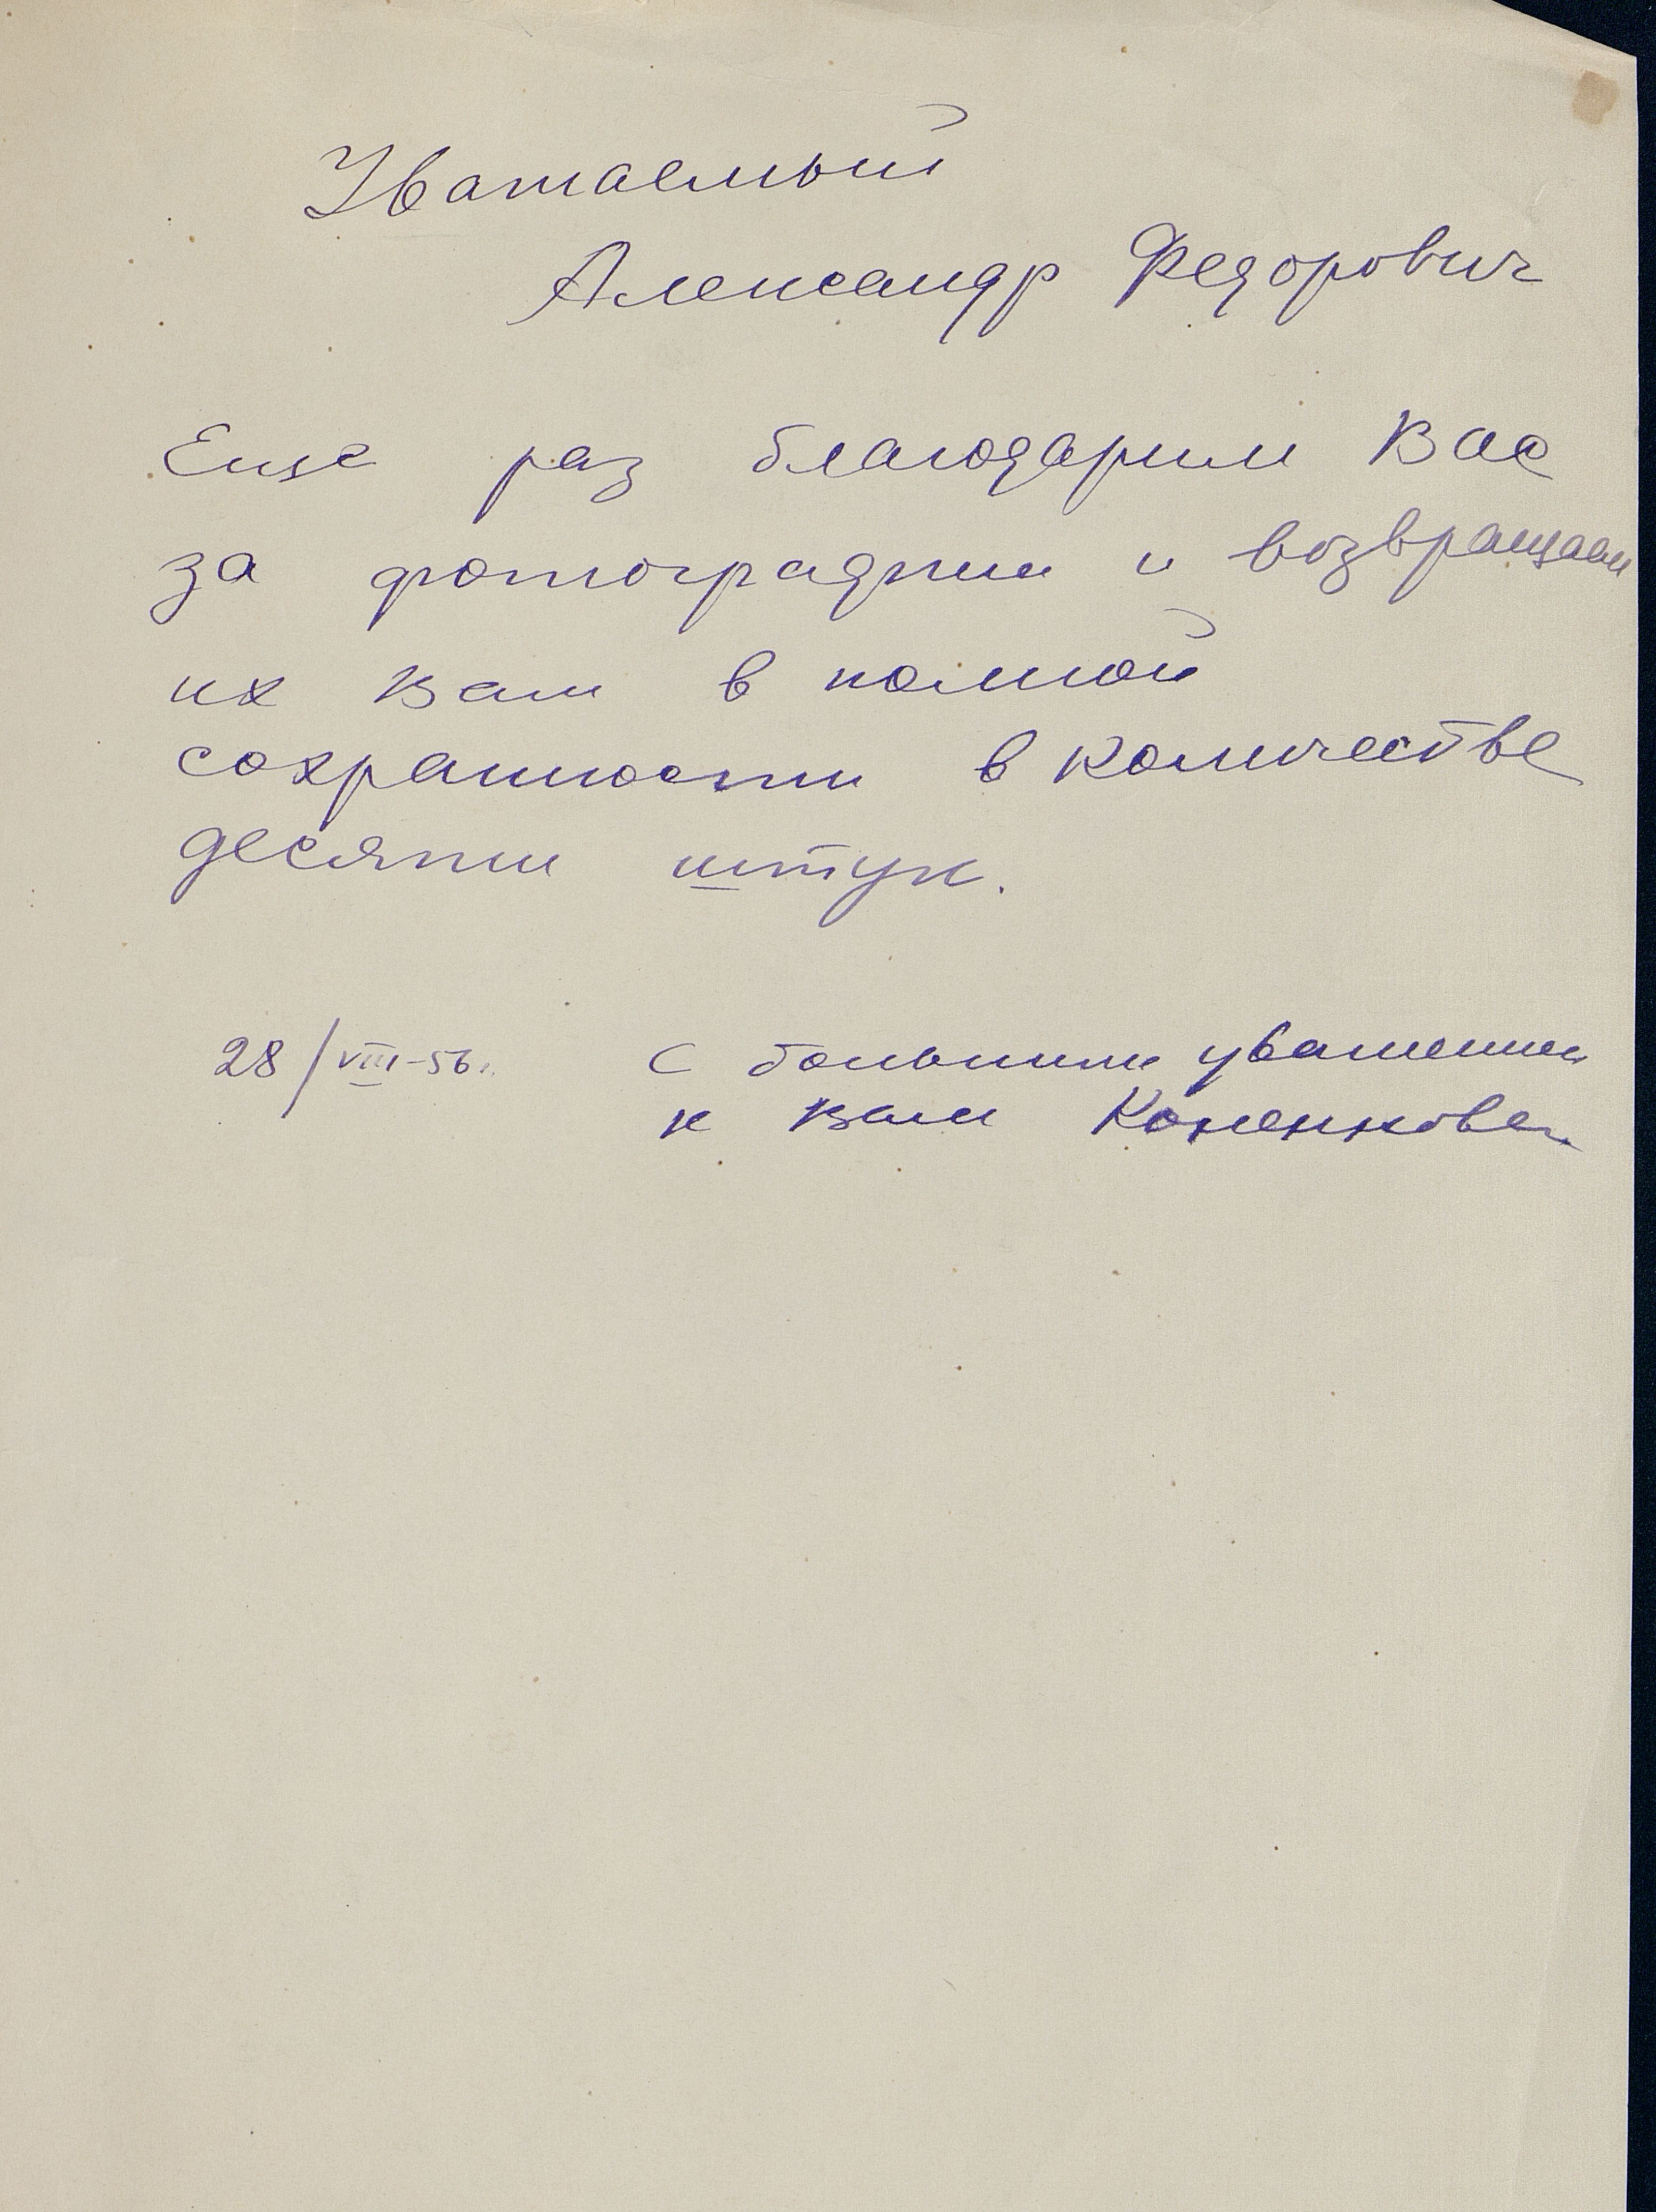 Уважаемый
Александр Федорович
Еще раз благодарим Вас
за фотографии и возвращаем
их Вам в полной
сохранности в количестве
десяти штук.
28/VIII-56г. С большим уважением
к Вам Коненкова